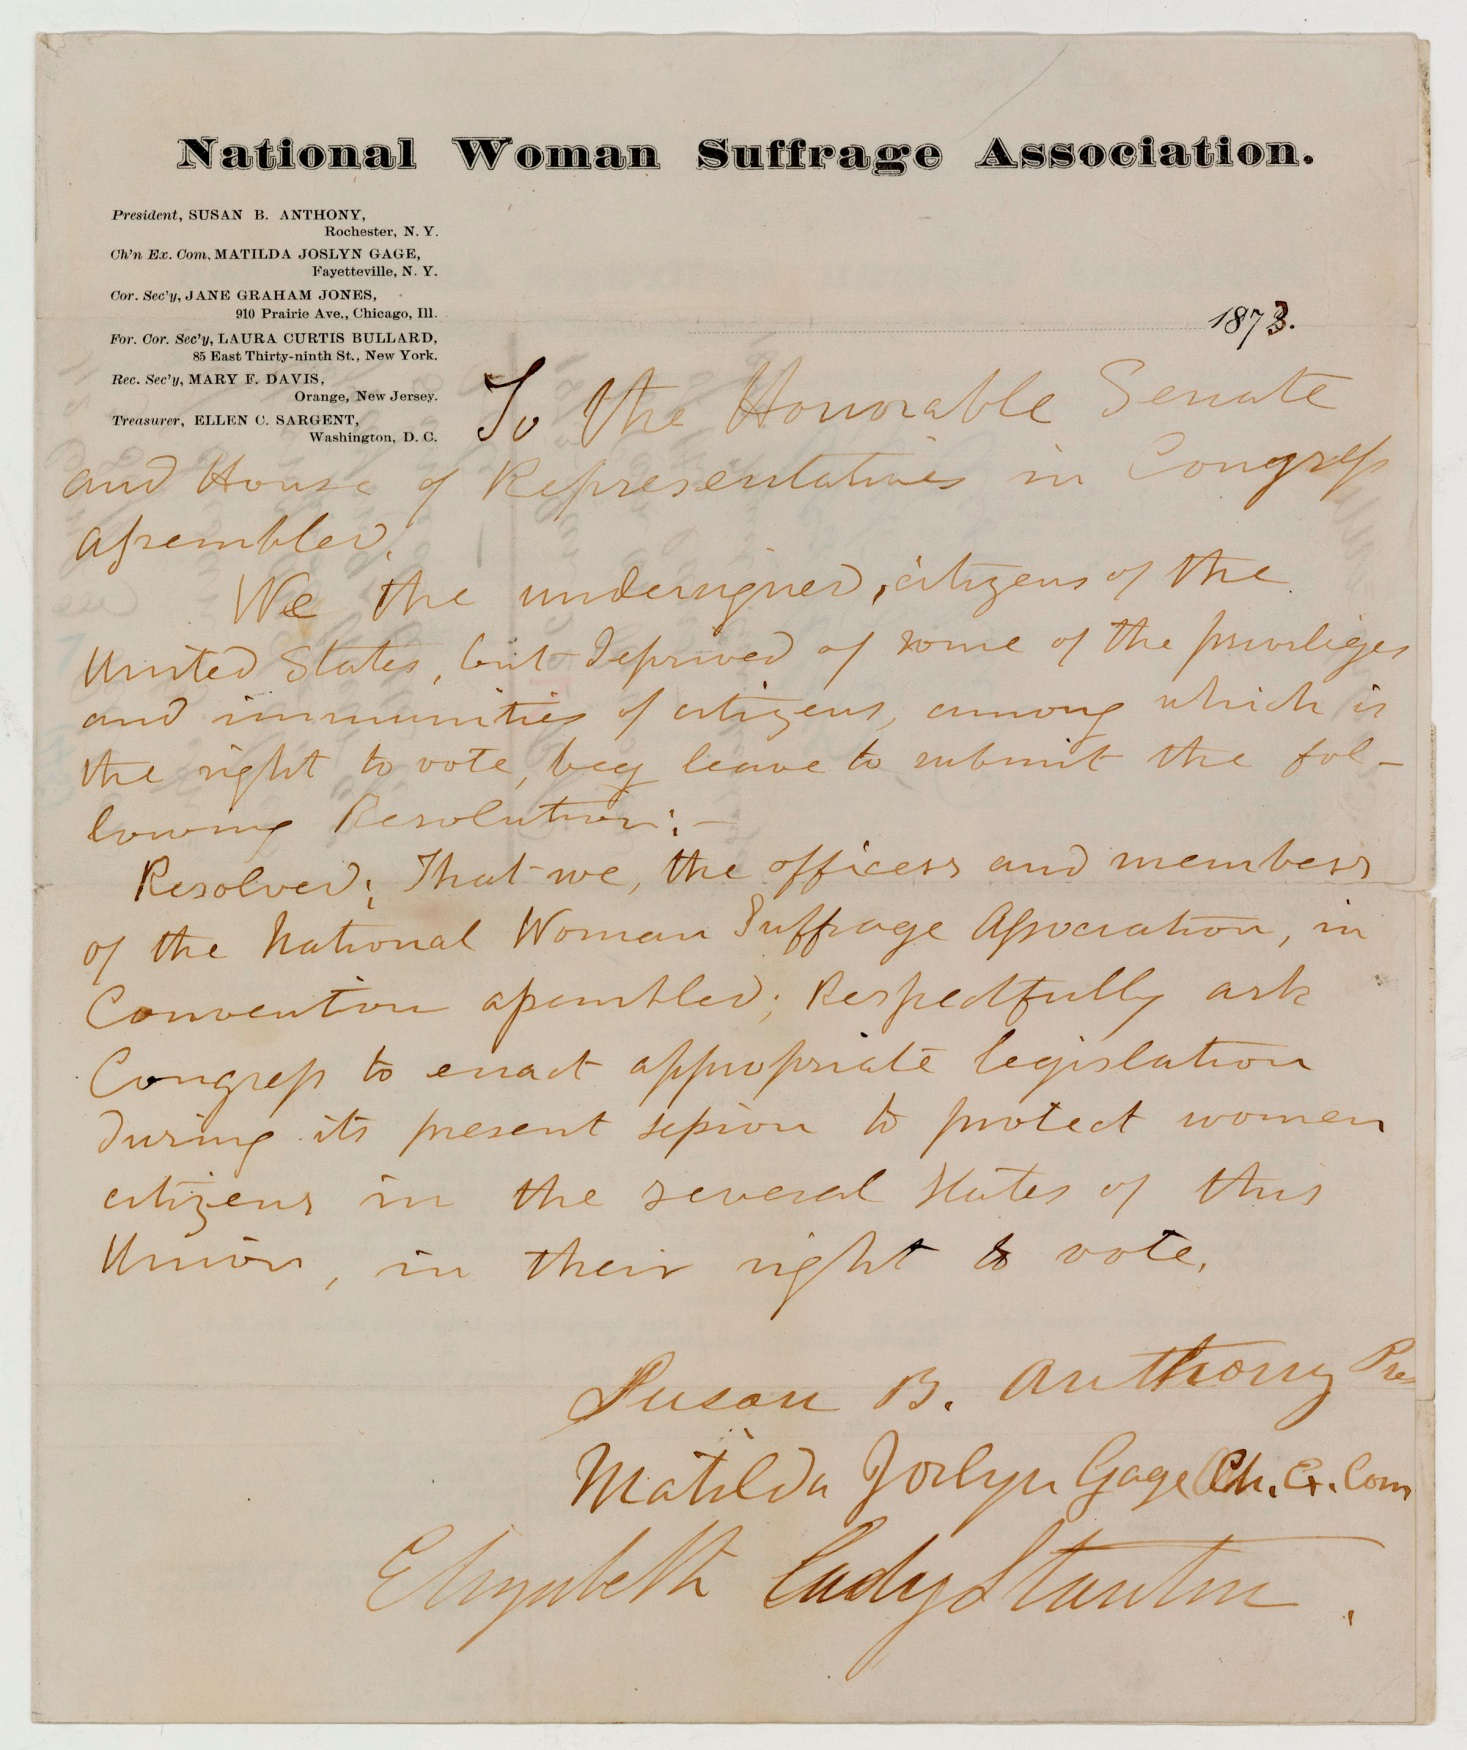 National Woman Suffrage Association.
President, SUSAN B. ANTHONY,
Rochester, N. Y.
Ch'n Ex. Com. MATILDA JOSLYN GAGE,
Fayetteville, N. Y.
Cor. Sec'y, JANE GRAHAM JONES,
910 Prairie Ave., Chicago, Ill.
For. Cor. Sec'y, LAURA CURTIS BULLARD,
85 East Thirty-ninth St., New York.
Rec. Sec'y, MARY F. DAVIS,
Orange, New Jersey.
Treasurer, ELLEN C. SARGENT,
Washington, D. C.
1873.
To the Honorable Senate
and House of Representatives in Congress
assembled.
We the undersigned, citizens of the
United States, but deprived of some of the privileges
and immunities of citizens, among which is
the right to vote, beg leave to submit the fol-
lowing Resolution:-
Resolved; That we, the officers and members
of the National Woman Suffrage Association, in
Convention assembled; Respectfully ask
Congress to enact appropriate legislation
during its present session to protect women
citizens in the several States of this
Union, in their right to vote.
Susan B. Anthony Pres
Matilda Joslyn Gage Ch. Ex. Com
Elizabeth Cady Stanton.